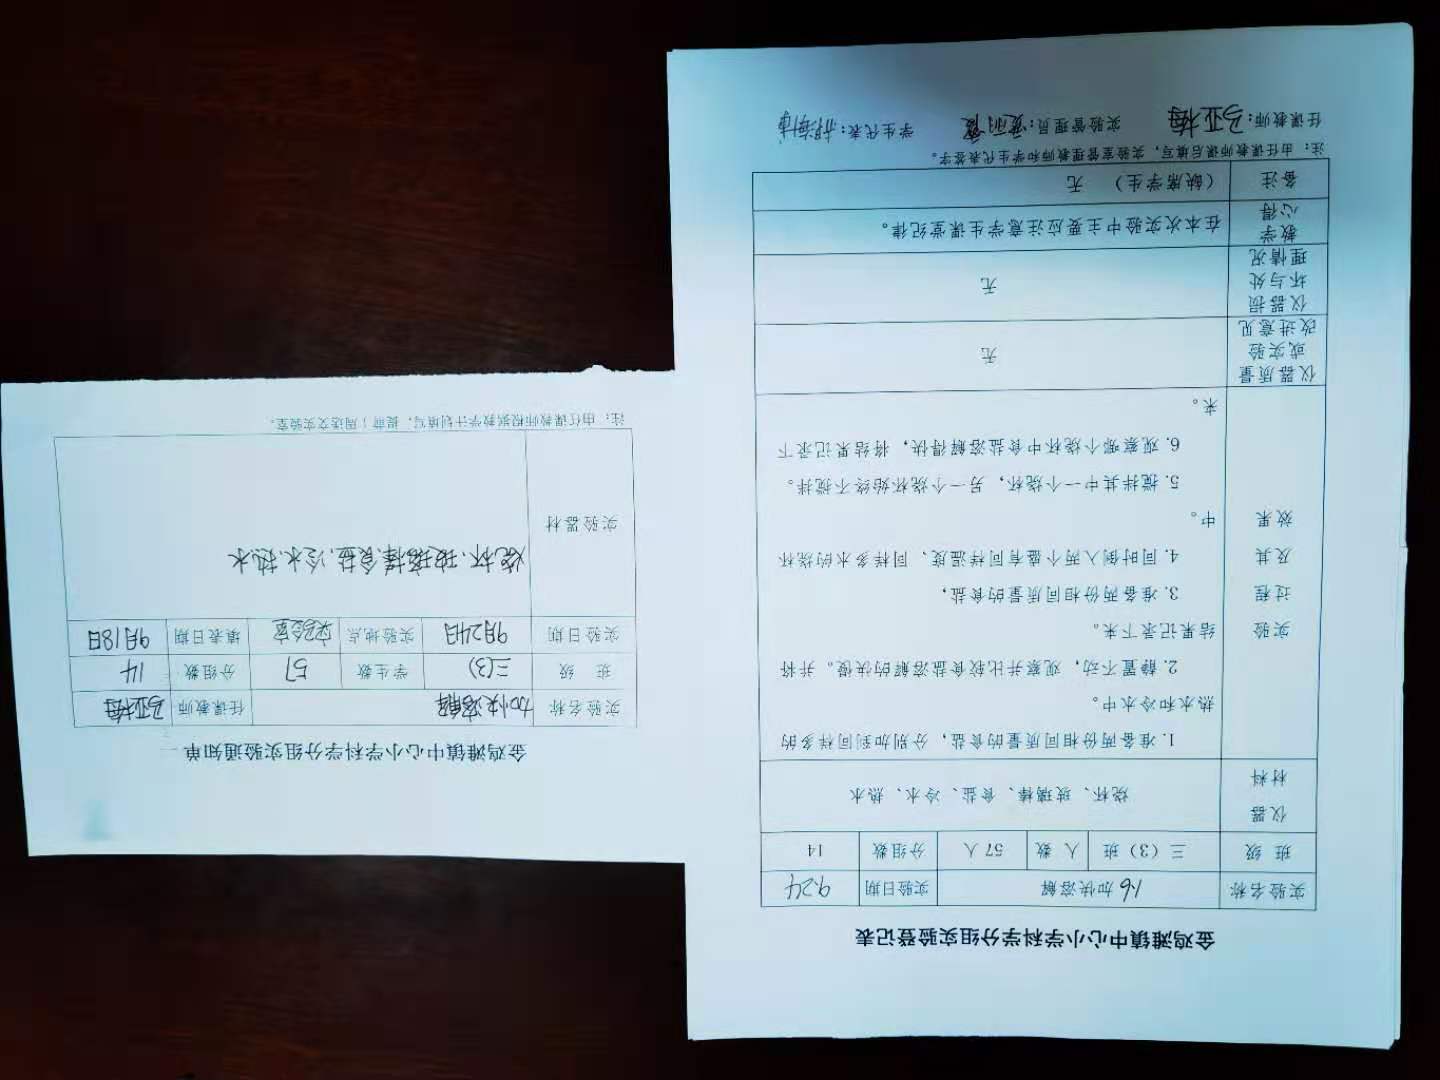 金鸡滩镇中心小学科学分组实验登记表
实验名称 1.6 加快溶解 实验日期 9.24
班 级 三（3）班 人 数 57人 分组数 14
仪器
材料
烧杯、玻璃棒、食盐、冷水、热水
实验
过程
及其
效果
1. 准备两份相同质量的食盐，分别加到同样多的
热水和冷水中。
2. 静置不动，观察并比较食盐溶解的快慢。并将
结果记录下来。
3. 准备两份相同质量的食盐，
4. 同时倒入两个盛有同样温度、同样多水的烧杯
中。
5. 搅拌其中一个烧杯，另一个烧杯始终不搅拌。
6. 观察哪个烧杯中食盐溶解得快，将结果记录下
来。
仪器质量
或实验
改进意见
无
仪器损
坏与处
理情况
无
教学
心得
在本次实验中主要应注意学生课堂纪律。
备注 （缺席学生） 无
注：由任课教师课后填写，实验室管理教师和学生代表签字。
任课教师：马亚梅 实验管理员： 学生代表：
金鸡滩镇中心小学科学分组实验通知单
实验名称 加快溶解 任课教师 马亚梅
班 级 三(3) 学生数 57 分组数 14
实验日期 9月24日 实验地点 实验室 填表日期 9月18日
实验器材
烧杯、玻璃棒、食盐、冷水、热水
注：由任课教师根据教学计划填写，提前1周送交实验室。